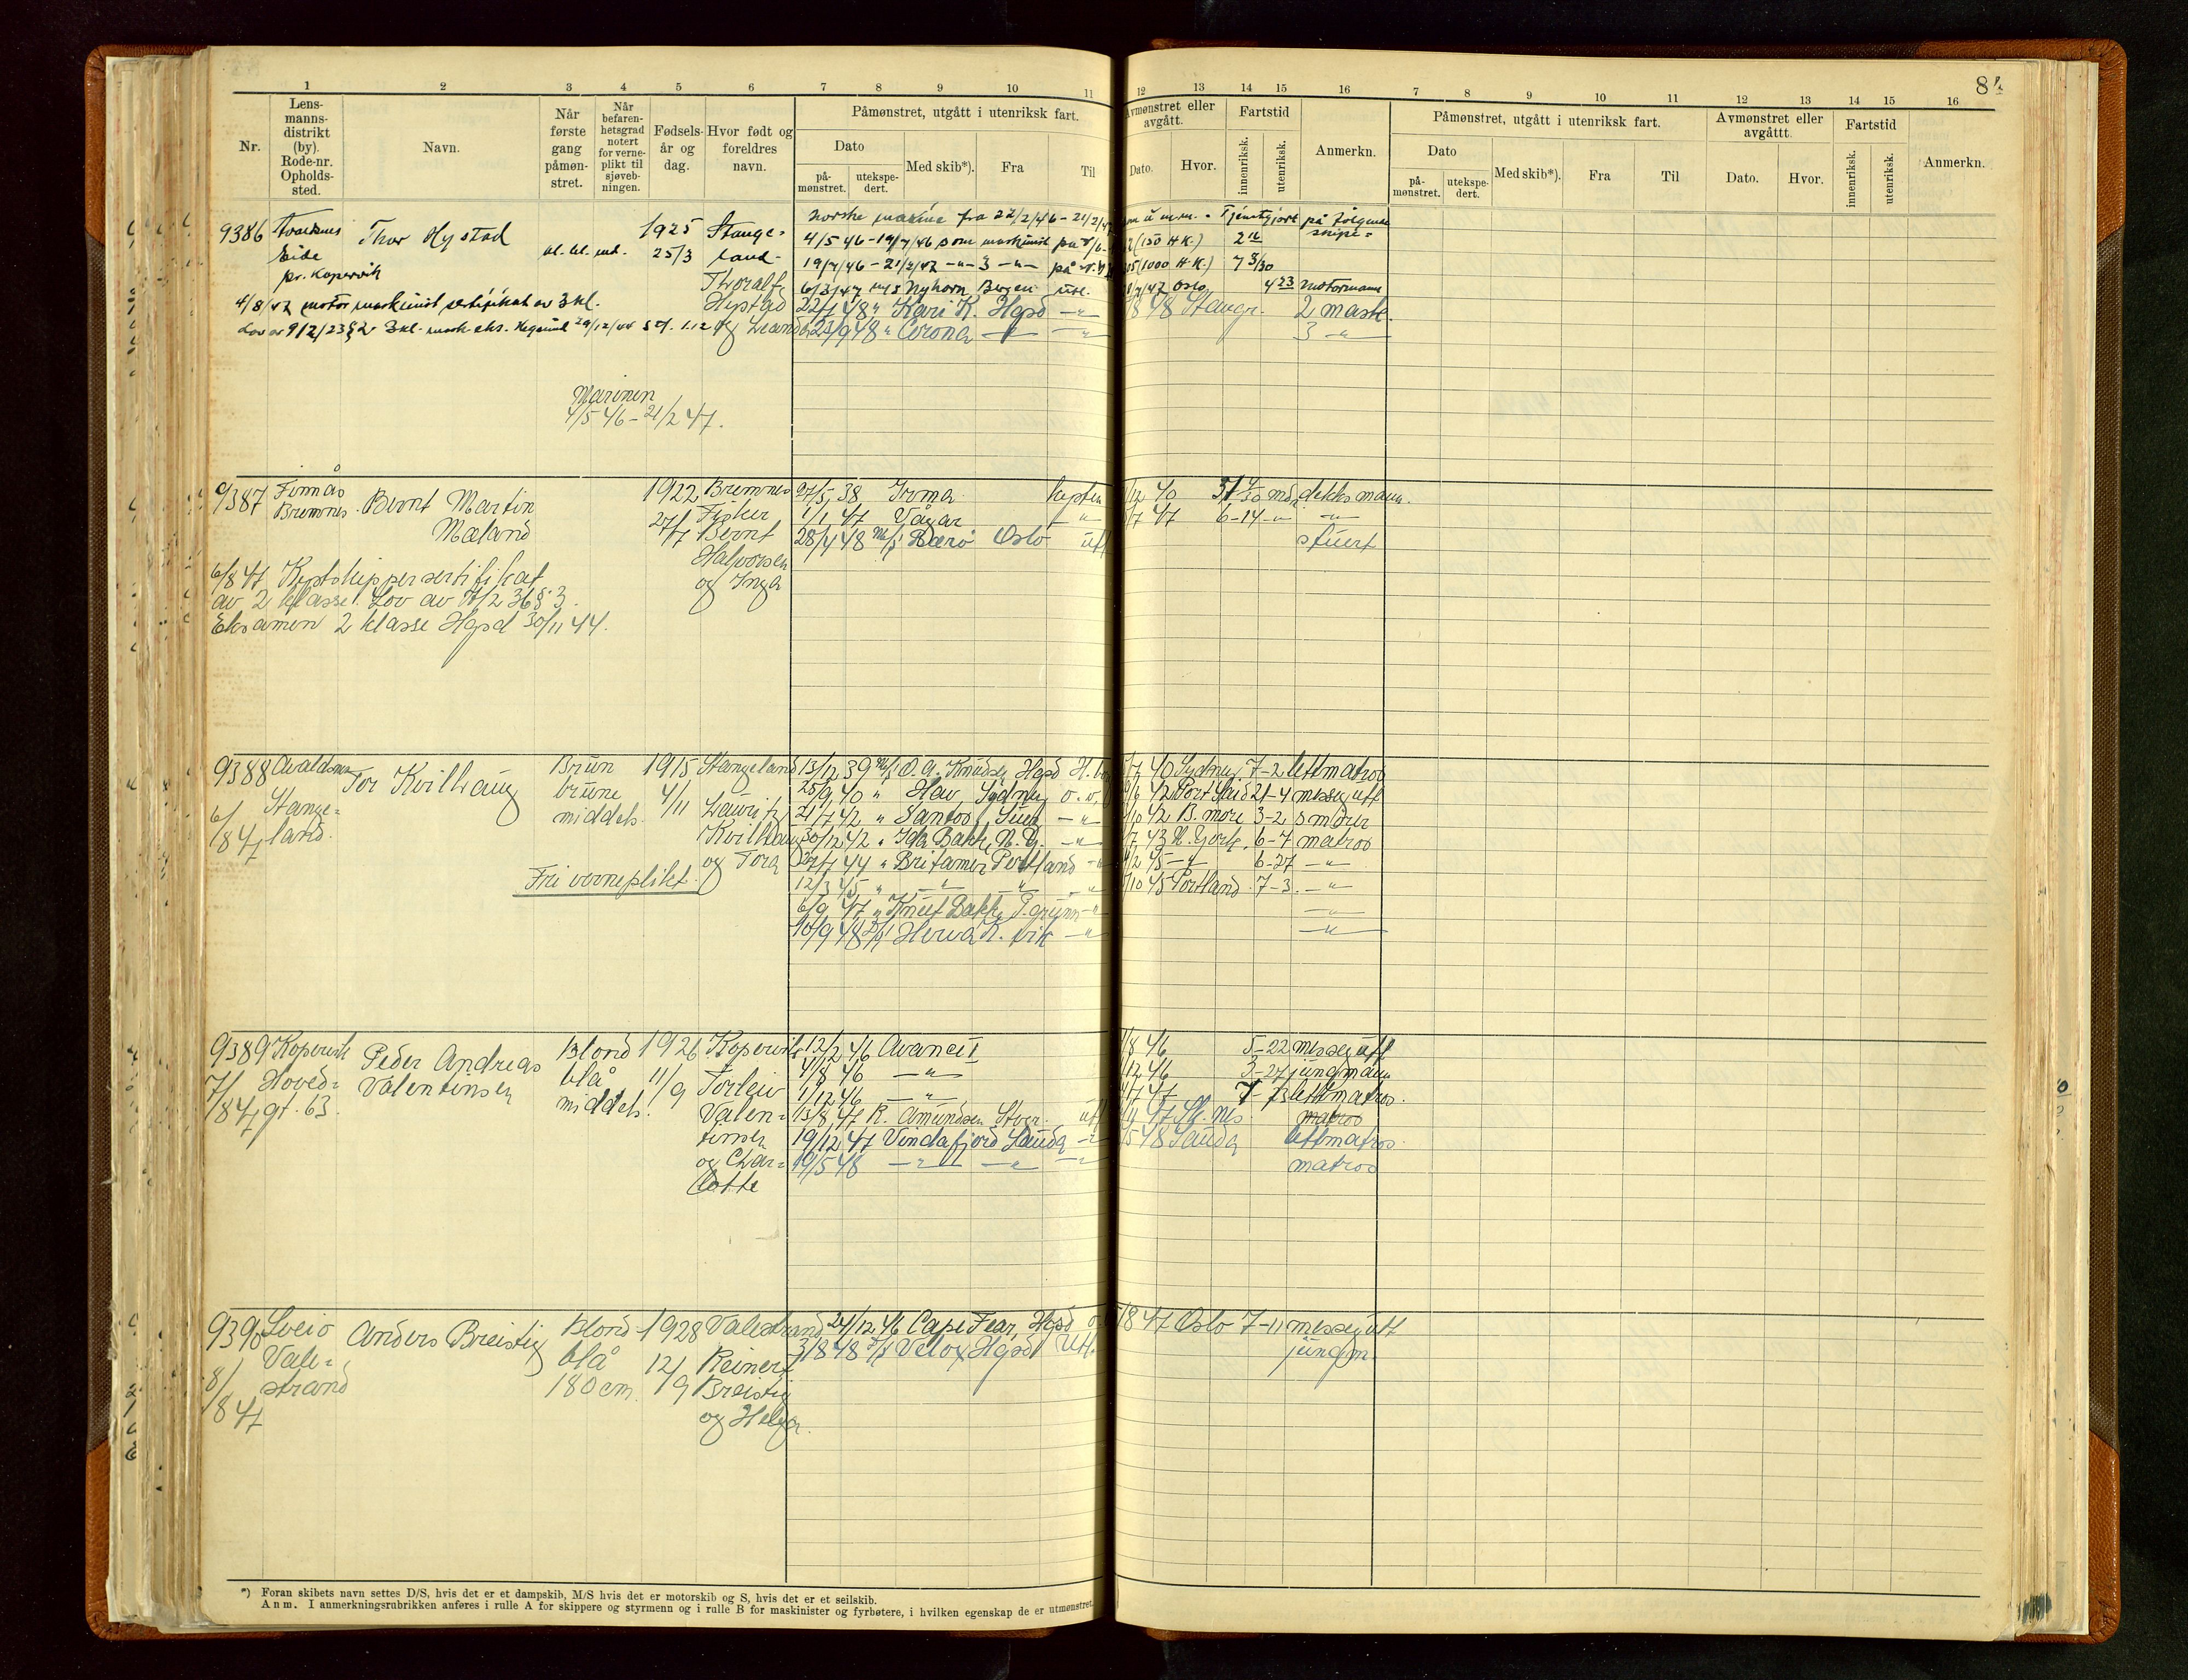 84
1 2 3 4 5 6 7 8 9 10 11 12 13 14 15 16 7 8 9 10 11 12 13 14 15 16
Nr.
Lens-
manns-
distrikt
(by).
Rode-nr.
Opholds-
sted.
Navn.
Når
første
gang
påmøn-
stret.
Når
befaren-
hetsgrad
notert
for verne-
plikt til
sjøveb-
ningen.
Fødsels-
år og
dag.
Hvor født og
foreldres
navn.
Påmønstret, utgått i utenriksk fart.
Dato
på-
mønstret.
utekspe-
dert.
Med skib*).
Fra
Til
Avmønstret eller
avgått.
Dato.
Hvor.
Fartstid
innenriksk.
utenriksk.
Anmerkn.
Påmønstret, utgått i utenriksk fart.
Dato
på-
mønstret.
utekspe-
dert.
Med skib*).
Fra
Til
Avmønstret eller
avgåttt.
Dato.
Hvor.
Fartstid
innenriksk.
utenriksk.
Anmerkn.
9386
Eide
pr. Kopervik
Thor Hystad
bl. bl. md.
1925
25/3
Stange-
land
Thoralf
Hystad
og
4/8/47 motor maskinist sertifikat av 3 kl.
Lov av 9/2/23 § 2
Norske marine fra 22/2/46 - 21/2/47
Tjenstgjort på følgende
skipe=
4/5 46 - 19/7/46 som maskinist på
(150 H.K.) 2 16
19/7/46 - 21/2/47 -"- 3 -"- på
(1000 H.K.) 7 3/30
6/3/47 m/s Nyhorn Bergen utl.
Oslo 4 23 motormann
22/1 48 " Kari K. Hgsd -"-
/8 48 Stavgr. 2 mask.
23/9 48 " Corona -"- -"-
3 -"-
Marinen
4/5 46 - 21/2 47.
9387
Finnås
Bremnes
Bernt Martin
Mæland
1922
27/7
Bremnes
Fisker
Bernt
Halvorsen
og Inga
27/5 38 Irma kysten
/12 40 31 mdr. dekksmann.
1/1 47 Vågar -"-
/7 47 6-14 -"- -"-
28/4 48 M/S Bærø Oslo utl
stuert
6/8 47 Kystskippersertifikat
av 2 klasse. Lov av
Eksamen 2 klasse Hgsd 30/11 44.
9388
6/
/8 47
Avaldsnes
Stange=
land.
Tor Kvilhaug
Brun
brune
middels.
1915
4/11
Stangeland
Lauritz
Kvilhaug
og Tora
Fri verneplikt.
13/12 39 M/S O. A. Knudsen Hgsd
40 Sydney 7-2 lettmatros
25/9 40 " Hav Sydney o.v.
42 Port Said 21-4 messegutt
21/7 42 " Santos Suez -"-
/10 42 B. more 3-2 smører
30/12 42 " Ida Bakke N. Y. -"-
43 N. York. 6-7 matros
44 " Britamer Portland -"-
/2 45 -"- 6-27 -"-
12/3 45 " -"- " -"-
/10 45 Portland 7-3. -"-
6/9 47 " Knut Bakke P.grunn -"-
-"-
10/9 48 D/S Herva K. vik -"-
-"-
9389
7/
/8 47
Kopervik
Hoved=
gt. 63.
Peder Andreas
Valentinsen
Blond
blå
middels.
1926
11/9
Kopervik
Torleiv
Valen=
tinsen
og Char=
lotte
12/2 46 Avance II
/8 46 5-22 messegutt
4/8 46 -"-
/12 46 3-27 jungmann
1/12 46 -"-
/7 47 7-23 lettmatros.
13/8 47 R. Amundsen Stvgr. utl
matros
19/12 47 Vindafjord Sauda -"-
/5 48 Sauda lettmatros.
19/5 48 -"- -"- -"-
matros
9390
8/
/8 47
Sveio
Vale=
strand
Anders Breistig
Blond
blå
180 cm.
1928
12/9
Valestrand
Reinert
Breistig
og Helga.
24/12 46 Cape Fear, Hgsd
/8 47 Oslo 7-11 messegutt
3/8 48 D/S Velox Hgsd Utl.
jungm.
*) Foran skibets navn settes D/S, hvis det er et dampskib, M/S hvis det er motorskib og S, hvis det er et seilskib.
Anm. I anmerkningsrubrikken anføres i rulle A for skippere og styrmenn og i rulle B for maskinister og fyrbøtere, i hvilken egenskap de er utmønstret.